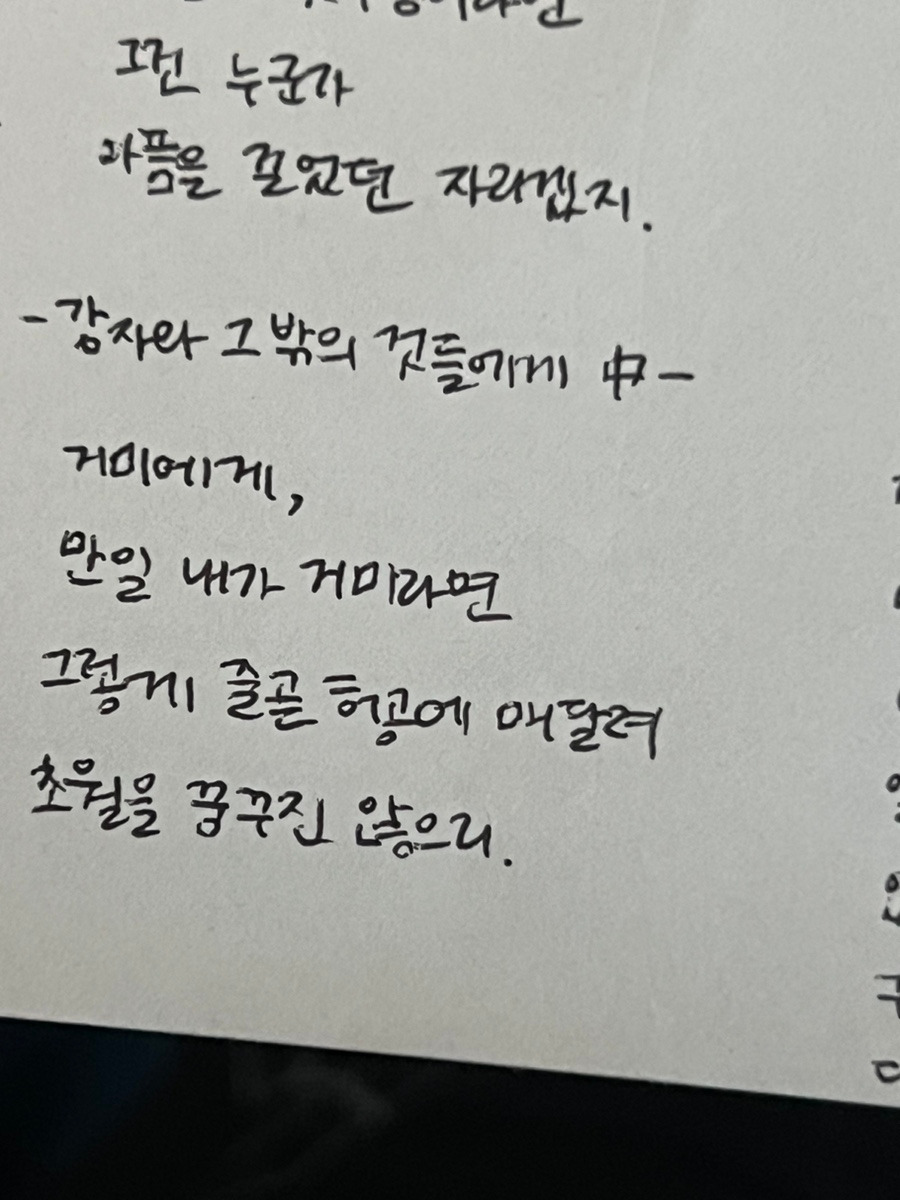 그건 누군가
아픔을 끌었던 자리겠지.
-감자와 그 밖의 것들에게 中-
거미에게,
만일 내가 거미라면
그렇게 줄곧 허공에 매달려
초월을 꿈꾸진 않으리.